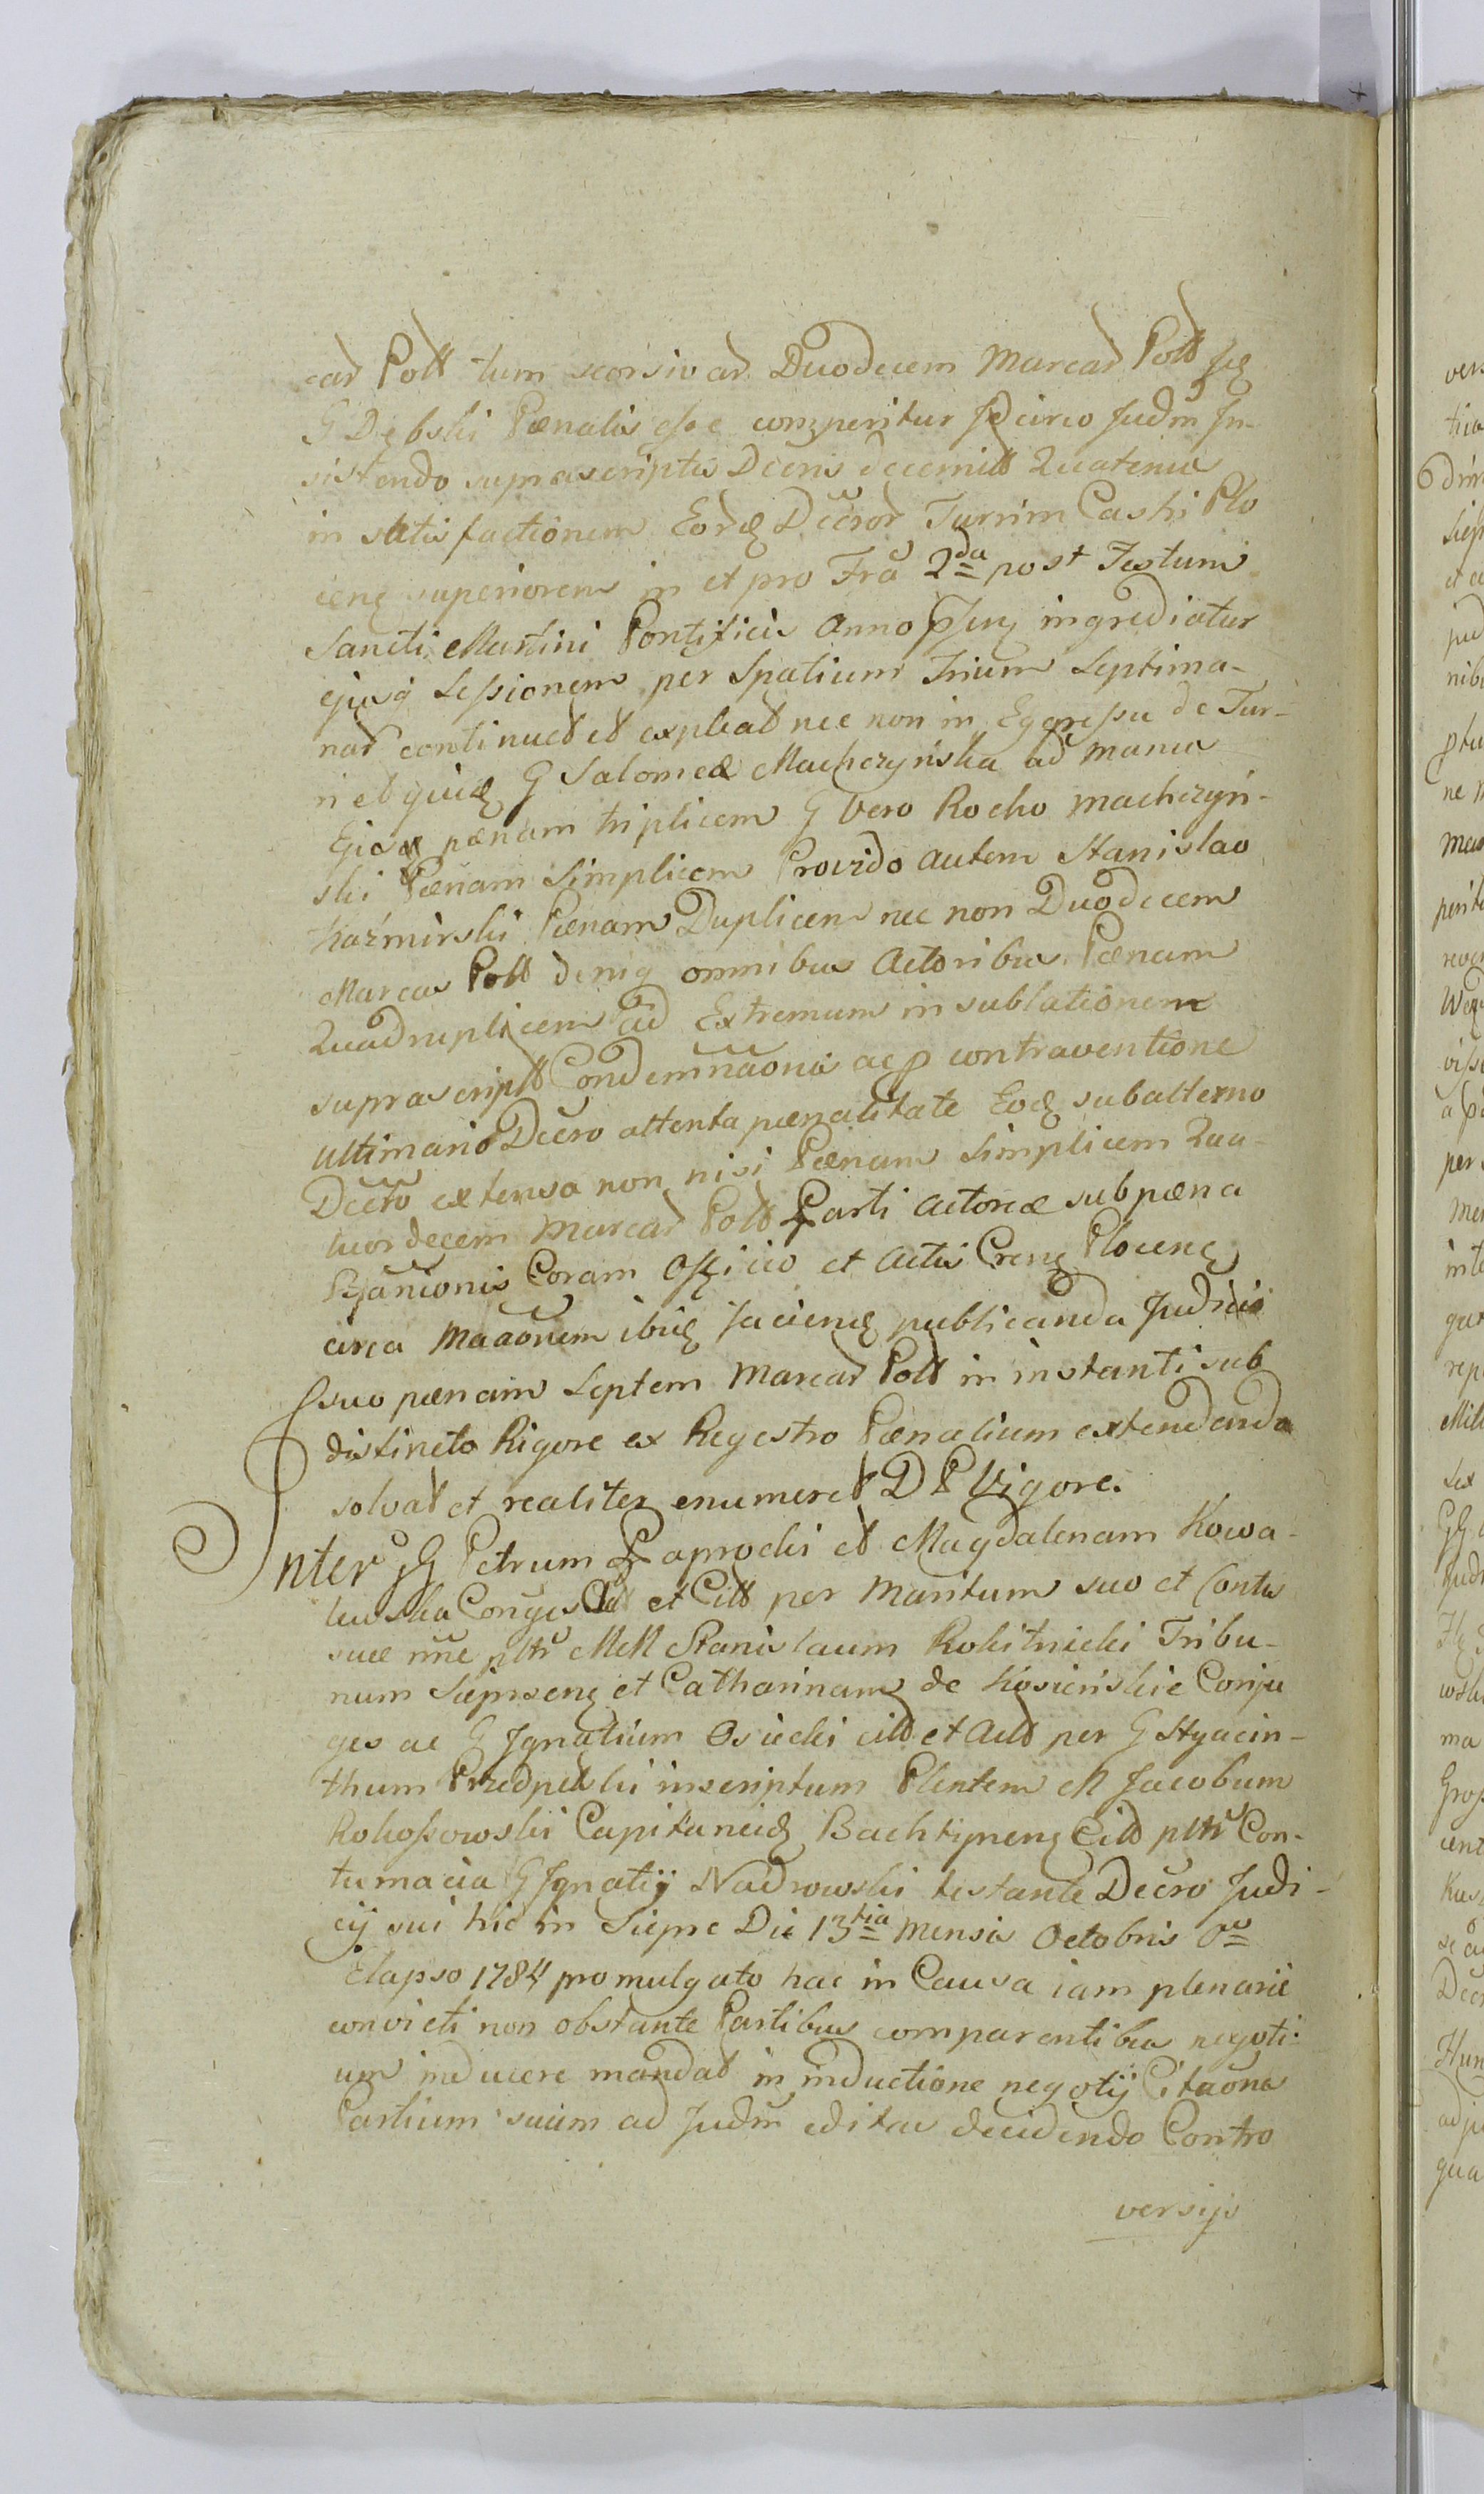 car Poll tum seorsivar Duodecem Marcar Poll
G Dębski Pœnalis esse comperitur Jdcirco Judm Jn-
sistendo suprascriptis Dcris decernitt Quatenus
in satisfactionem Eord Dčror Turrim Castri Plo
cens superiorem in et pro Frã 2da post Festum
Sancti Martini Pontificis Anno ingrediatur
ejusq Sessionem per Spatium Trium Septima-
nar continuet et expleat nec non in Egressu de Tur-
ri et G Salomeæ Machczyńska ad manus
Ejas pœnam triplicem G Vero Rocho Machczyń-
ski Pœnam Simplicem Provido autem Stanislao
Kaźmirski Pœnam Duplicem nec non Duodecem
Marcas Poll deniq omnibus Actoribus Pœnam
Quadruplicem ad Extremum in sublationem
suprascript Condemnãonis ac p contraventione
ultimario Dčcro attenta pœnalitate Eod subalterno
Dčcro extensa non nisi Pœnam Simplicem Qua-
tuordecem Marcar Poll Parti Actoreæ sub pœna
Bãnionis Coram Officio et Actis Crens Plocens
circa Maãonem ibid faciend publicanda Judicio
suo pœnam Septem Marcar Poll in instanti sub
distincto Rigore ex Regestro Pœnalium extendenda
solvat et realiter enumeret D P Vigore.
Jnter G Petrum Paprocki et Magdalenam Kowa-
lewska Conges et Citt per Maritum suo et Contis
suæ nne pltr MM Stanislaum Rokitnicki Tribu-
num Sieprcens et Catharinam de Kosieńskie Conju
ges ac G Jgnatium Osiecki citt et Actt per G Hyacin-
thum Przedpełski inscriptum Plentem M Jacobum
Rokossowski Capitaneid Bachtynens Citt pltr Con-
tumacia G Jgnatij Nadrowski testante Decro Judi-
cij sui hic in Siepre Die 13tia Mensis Octobris
Elapso 1784 promulgato hac in Causa iam plenarie
convicti non obstante Partibus comparentibus negoti-
um inducere mandat in inductione negotij Citãons
Partium suum ad Judm editas decidendo Contro
versijs